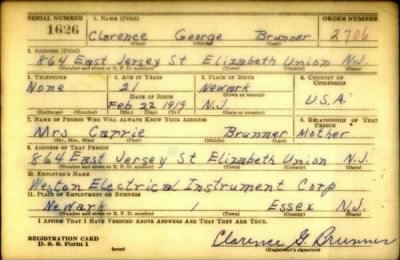 SERIAL NUMBER 1. NAME (Print) ORDER NUMBER
1626 Clarence George Brunner 2706
(First) (Middle) (Last)
2. ADDRESS (Print)
864 East Jersey St Elizabeth Union N.J.
(Number and street or R. F. D. number) (Town) (County) (State)
3. TELEPHONE 4. AGE IN YEARS 5. PLACE OF BIRTH 6. COUNTRY OF CITIZENSHIP
None 21 Newark
DATE OF BIRTH (Town or county)
Feb 22 1919 N.J. U.S.A.
(Exchange) (Number) (Mo.) (Day) (Yr.) (State or country)
7. NAME OF PERSON WHO WILL ALWAYS KNOW YOUR ADDRESS 8. RELATIONSHIP OF THAT PERSON
Mrs Carrie Brunner Mother
(Mr., Mrs., Miss) (First) (Middle) (Last)
9. ADDRESS OF THAT PERSON
864 East Jersey St Elizabeth Union N.J.
(Number and street or R. F. D. number) (Town) (County) (State)
10. EMPLOYER'S NAME
Weston Electrical Instrument Corp
11. PLACE OF EMPLOYMENT OR BUSINESS
Newark Essex N.J.
(Number and street or R. F. D. number) (Town) (County) (State)
I AFFIRM THAT I HAVE VERIFIED ABOVE ANSWERS AND THAT THEY ARE TRUE.
REGISTRATION CARD
D. S. S. Form 1 Clarence G. Brunner
(over) (Registrant's signature)